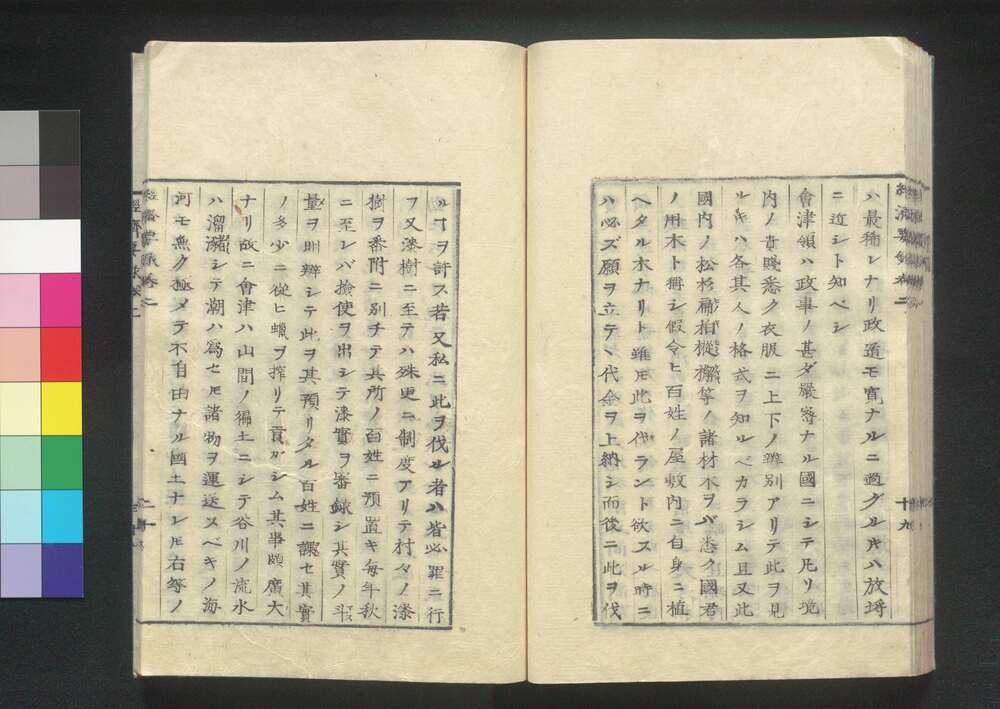 經濟要錄卷二
十九
ハ最稀レナリ政道モ寛ナルニ過グル𪜈ハ放埓
ニ近シト知ベシ
會津領ハ政事ノ甚ダ嚴密ナル國ニシテ凡リ境
内ノ貴賤悉ク衣服ニ上下ノ辨別アリテ此ヲ見
ルキハ各其人ノ格式ヲ知ルベカラシム且又此
國内ノ松杉扁柏樅櫸等ノ諸材木ヲバ悉ク國君
ノ用木ト稱シ假令ヒ百姓ノ屋敷内ニ自身ニ植
ヘタル木ナリト雖𪜈此ヲ伐ラント欲スル時ニ
ハ必ズ願ヲ立テヽ代金ヲ上納シ而後ニ此ヲ伐
ルヿヲ許ス若又私ニ此ヲ伐ル者ハ皆必罪ニ行
フ又漆樹ニ至テハ殊更ニ制度アリテ村々ノ漆
樹ヲ番附ニ別チテ其所ノ百姓ニ預置キ每年秋
ニ至レバ撿使ヲ出シテ漆實ヲ審錄シ其實ノ斗
量ヲ明辨シテ此ヲ其預リタル百姓ニ課セ其實
ノ多少ニ從ヒ蠟ヲ搾リテ貢ガシム其事頗廣大
ナリ故ニ會津ハ山間ノ徧土ニシテ谷川ノ流水
ハ溜瀦シテ潮ハ爲セ𪜈諸物ヲ運送スベキノ海
河モ無ク極メテ不自由ナル國土ナレ𪜈右等ノ
經濟要錄卷二
二十